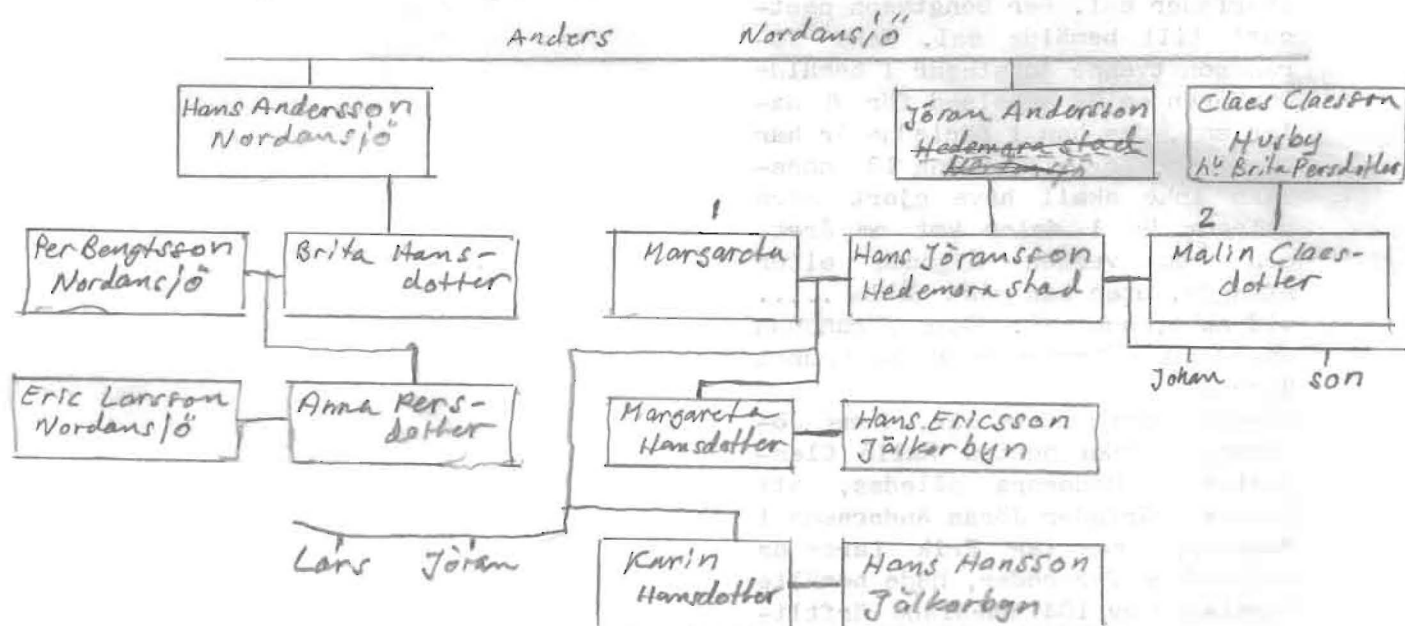 Anders Nordansjö
Hans Andersson
Nordansjö
Jöran Andersson
Hedemora stad
Claes Claesson
Husby
hu Brita Persdotter
Per Bengtsson
Nordansjö
Brita Hans-
dotter
1
Margareta
Hans Jöransson
Hedemora stad
2
Malin Claes-
dotter
Johan son
Eric Larsson
Nordansjö
Anna Pers-
dotter
Margareta
Hansdotter
Hans Ericsson
Jälkarbyn
Lars Jöran
Karin
Hansdotter
Hans Hansson
Jälkarbyn